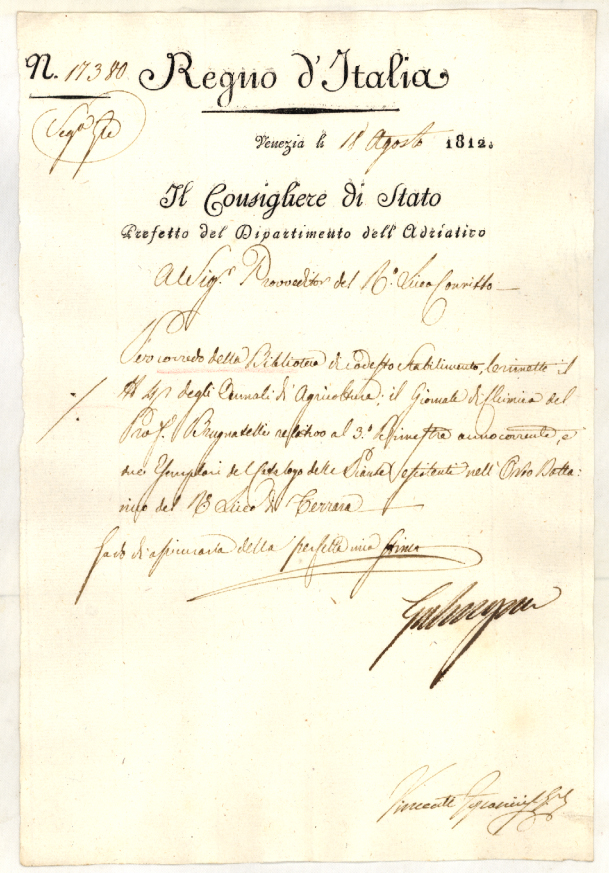 N. 17380 Regno d'Italia
Venezia li 18 Agosto 1812.
Il Consigliere di Stato
Prefetto del Dipartimento dell'Adriatico
Al Sig.r Provveditor del R.o Liceo Convitto
Per corredo della Biblioteca di codesto Stabilimento, le rimetto il
degli Annali di Agricoltura; il Giornale di Chimica del
Prof.r Brugnatelli relativo al 3.o Bimestre anno corrente, e
due Esemplari del Catalogo delle Piante esistenti nell'Orto Botta=
nico del R.o Liceo di Ferrara
Godo di assicurarla della perfetta mia stima